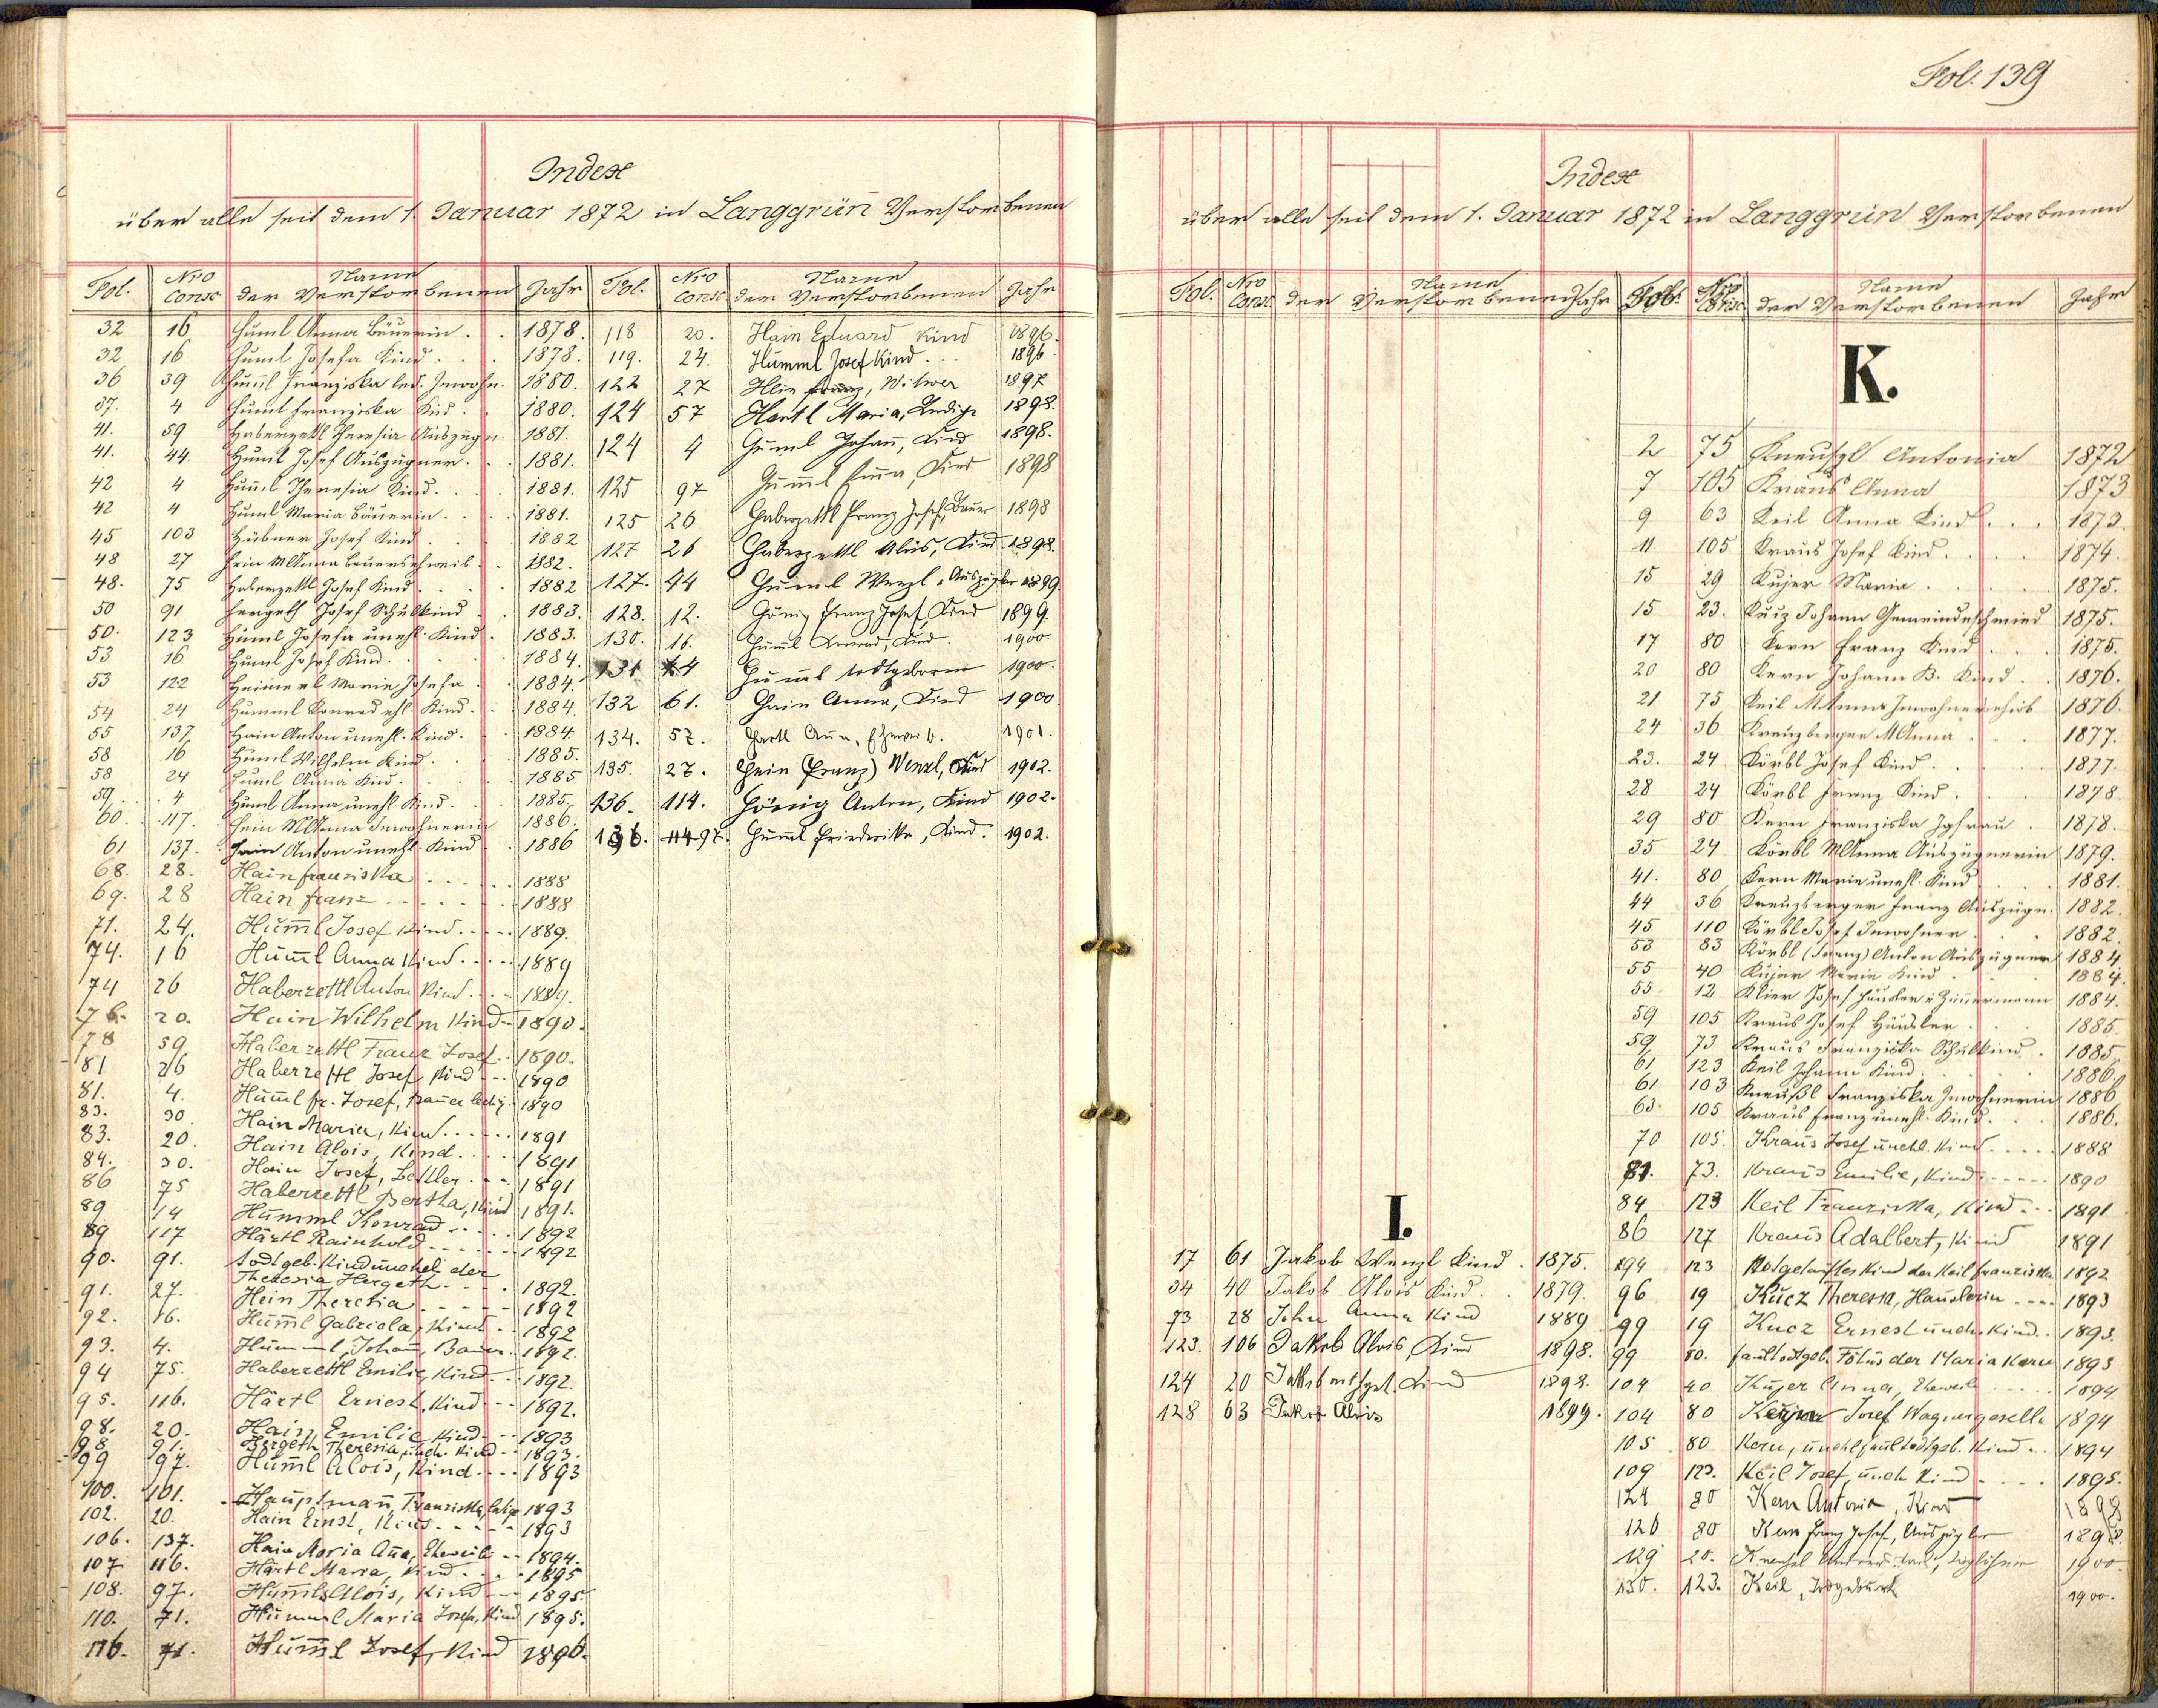 Fol. 139
Index
über alle seit dem 1. Januar 1872 in Langgrün Verstorbenen
Fol. Nro Consc Name der Verstorbenen Jahr
32 16 Huml Anna Bäuerin 1878.
32 16 Huml Josefa Kind 1878.
36 39 Huml Franziska led. Inwohn. 1880.
37. 4 Huml Franziska Kind 1880.
41. 59 Haberzettl Theresia Auszügn. 1881.
41. 44. Huml Josef Auszügner 1881.
42 4 Huml Theresia Kind 1881.
42 4 Huml Maria Bäuerin 1881.
45 103 Hübner Josef Kind 1882
48 27 Hein MAnna Bauersweib 1882.
48. 75 Haberzettl Josef Kind 1882
50 91 Hergeth Josef Schulkind 1883.
50. 123 Huml Josefa unehl. Kind 1883.
53 16 Huml Josef Kind 1884.
53 122 Heimerl Marie Josefa 1884.
54 24 Humml Konrad ehl. Kind 1884
55 137 Hain Anton unehl. Kind 1884
58 16 Huml Wilhelm Kind 1885.
58 24 Huml Anna Kind 1885
59 4 Huml Anna unehl. Kind 1885.
60. 117. Hein MAnna Inwohnerin 1886.
61 137. Hain Anton unehl. Kind 1886
68. 28. Hain franziska 1888
69. 28 Hain franz 1888
71. 24. Hum̄l Josef Kind 1889.
74. 16 Hum̄l Anna Kind 1889
74 26 Haberzettl Anton Kind 1889.
76. 20. Hain Wilhelm Kind 1890.
78 59 Haberzettl Franz Josef 1890.
81 26 Haberzettl Josef Kind 1890
81. 4. Hum̄l fr. Josef, Bauer ledig 1890
83. 30 Hain Maria, Kind 1891
83. 20. Hain Alois, Kind 1891
84. 30. Hain Josef, Bettler 1891
86 75 Haberzettl Bertha, Kind 1891.
89 14 Humml Konrad 1892
89 117 Härtl Rainhold 1892
90. 91. todtgeb. Kind unehel. der
Theresia Hergeth 1892.
91. 27. Hein Theresia 1892
92. 16. Hum̄l Gabriela, Kind 1892
93. 4. Humml Johan̄, Bauer 1892.
94 75. Haberzettl Emilie, Kind 1892.
95. 116. Härtl Ernest, Kind 1892.
98. 20. Hain Emilie Kind 1893
98 91. Hergeth Theresia, uneh. Kind 1893.
99 97. Hum̄l Alois, Kind 1893
100. 101. Hauptman̄, Franziska, ledige 1893
102. 20. Hain Ernst, Kind 1893
106. 137. Hain Maria An̄a, Eheweib 1894.
107 116. Härtl Maria, Kind 1895
108. 97. Hum̄l Alois, Kind 1895.
110. 71. Humml Maria Josefa, Kind 1895.
116. 71. Hum̄l Josef, Kind 1896.
Fol. Nro Consc Name der Verstorbenen Jahr
118 20. Hain Eduard Kind 1896.
119. 24. Humml Josef Kind 1896
122 27 Hein Franz, Witwer 1897
124 57 Hartl Maria, Ledige 1898.
124 4 Huml Johan̄, Kind 1898.
125 97 Hum̄l Kind 1898
125 26 Haberzettl Franz Josef, Bauer 1898
127 26 Haberzettl Alois, Kind 1898.
127. 44 Huml Wenzl, Auszügler 1899.
128. 12. Hönig Franz Josef, Kind 1899.
130. 16. Hum̄l Konrad, Kind 1900.
131 4 Hum̄l todtgeboren 1900.
132 61. Hain Anna, Kind 1900
134. 57. Hartl An̄a, Eheweib. 1901.
135. 27. Hein (Franz) Wenzl, Kind 1902.
136. 114. Hönig Anton, Kind 1902.
136. 97. Hum̄l Friederika, Kind. 1902.
Index
über alle seit dem 1. Januar 1872 in Langgrün Verstorbenen
Fol. Nro Consc der Name Verstorbenen Jahr
I.
17 61 Jakob Wenzl Kind 1875.
34 40 Jakob Alois Kind 1879.
73 28 John Anna Kind 1889
123. 106 Jakob Alois, Kind 1898.
124 20 Jakob Kind 1898.
128 63 Jakob Alois 1899.
Fol. Nro Consc Name der Verstorbenen Jahr
K.
2 75 Kneußl Antonia 1872
7 105 Kraus Anna 1873
9 63 Keil Anna Kind 1873.
11 105 Kraus Josef Kind 1874.
15 29 Kujer Maria 1875.
15 23. Johann Gemeindeschmied 1875.
17 80 Kern Franz Kind 1875.
20 80 Kern Johann B. Kind 1876.
21 75 Keil MAnna Inwohnersweib 1876.
24 36 Kreuzberger MAnna 1877.
23. 24 Körbl Josef Kind 1877.
28 24 Körbl Franz Kind 1878
29 80 Kern Franziska Jgfrau 1878.
35 24 Körbl MAnna Auszügnerin 1879.
41. 80 Kern Marie unehl. Kind 1881.
44 36 Kreuzberger Franz Auszügn. 1882.
45 110 Körbl Josef Inwohner 1882
53 83 Körbl (Franz) Anton Auszügner 1884
55 40 Kujer Marie Kind 1884.
55 12 Klier Josef Häusler u Zim̄ermann 1884.
59 105 Kraus Josef Häusler 1885.
59 73 Kraus Franziska Schulkind 1885.
61 123 Keil Johann Kind 1886.
61 103 Kneußl Franziska Inwohnerin 1886
63. 105 Kraus Franz unehl. Kind 1886.
70 105. Kraus Josef unehl. Kind 1888
81. 73. Kraus Emilie, Kind 1890
84 123 Keil Franziska, Kind 1891
86 127 Kraus Adalbert, Kind 1891
94 123 Notgetauftes Kind der Keil franziska 1892
96 19 Kucz Theresia, Hauslerin 1893
99 19 Kucz Ernest uneh. Kind 1893.
99 80. faultodtgeb. Fötus der Maria Kern 1893
104 40 Kujer Anna, Eheweib 1894
104 80 Josef Wagnergeselle 1894
105 80 Kern, unehl. faultodtgeb. Kind 1894
109 123. Keil Josef, uneh. Kind 1895.
124 80 Kern Antonia, Kind 1898
126 80 Kern Franz Josef, Auszügler 1898.
129 20. Kneußl 1900.
130. 123. Keil, Todgeburt 1900.